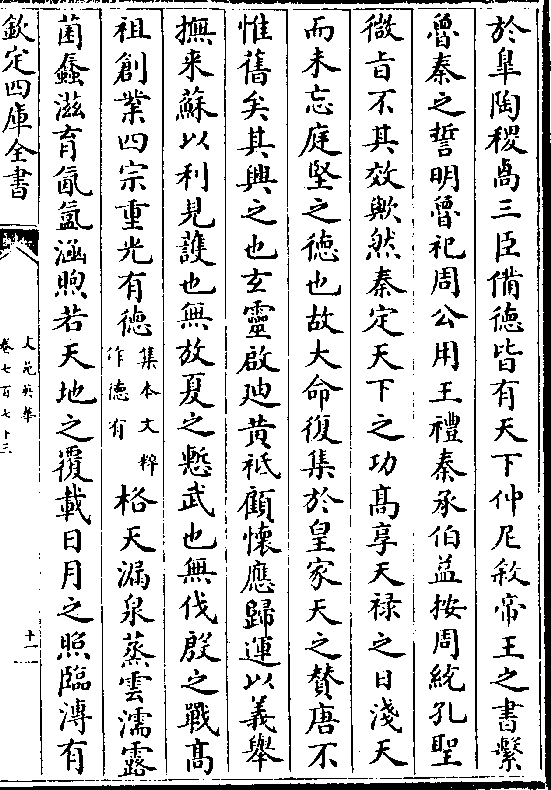 於臯陶稷卨三臣備德皆有天下仲尼叙帝王之書繫
魯秦之誓明魯祀周公用王禮秦承伯益按周統孔聖
微㫖不其效歟然秦定天下之功髙享天禄之日淺天
而未忘庭堅之德也故大命復集於皇家天之賛唐不
惟舊矣其興之也玄靈啟迪黄祇顧懷應歸運以義舉
撫来蘇以利見䕶也無放夏之慙武也無伐殷之戰髙
祖創業四宗重光有德集本文粹作德有格天漏泉蒸雲濡露
菌蠢滋育氤氲涵煦若天地之覆載日月之照臨溥有
欽定四庫全書
文苑英華
卷七百七十三
十二